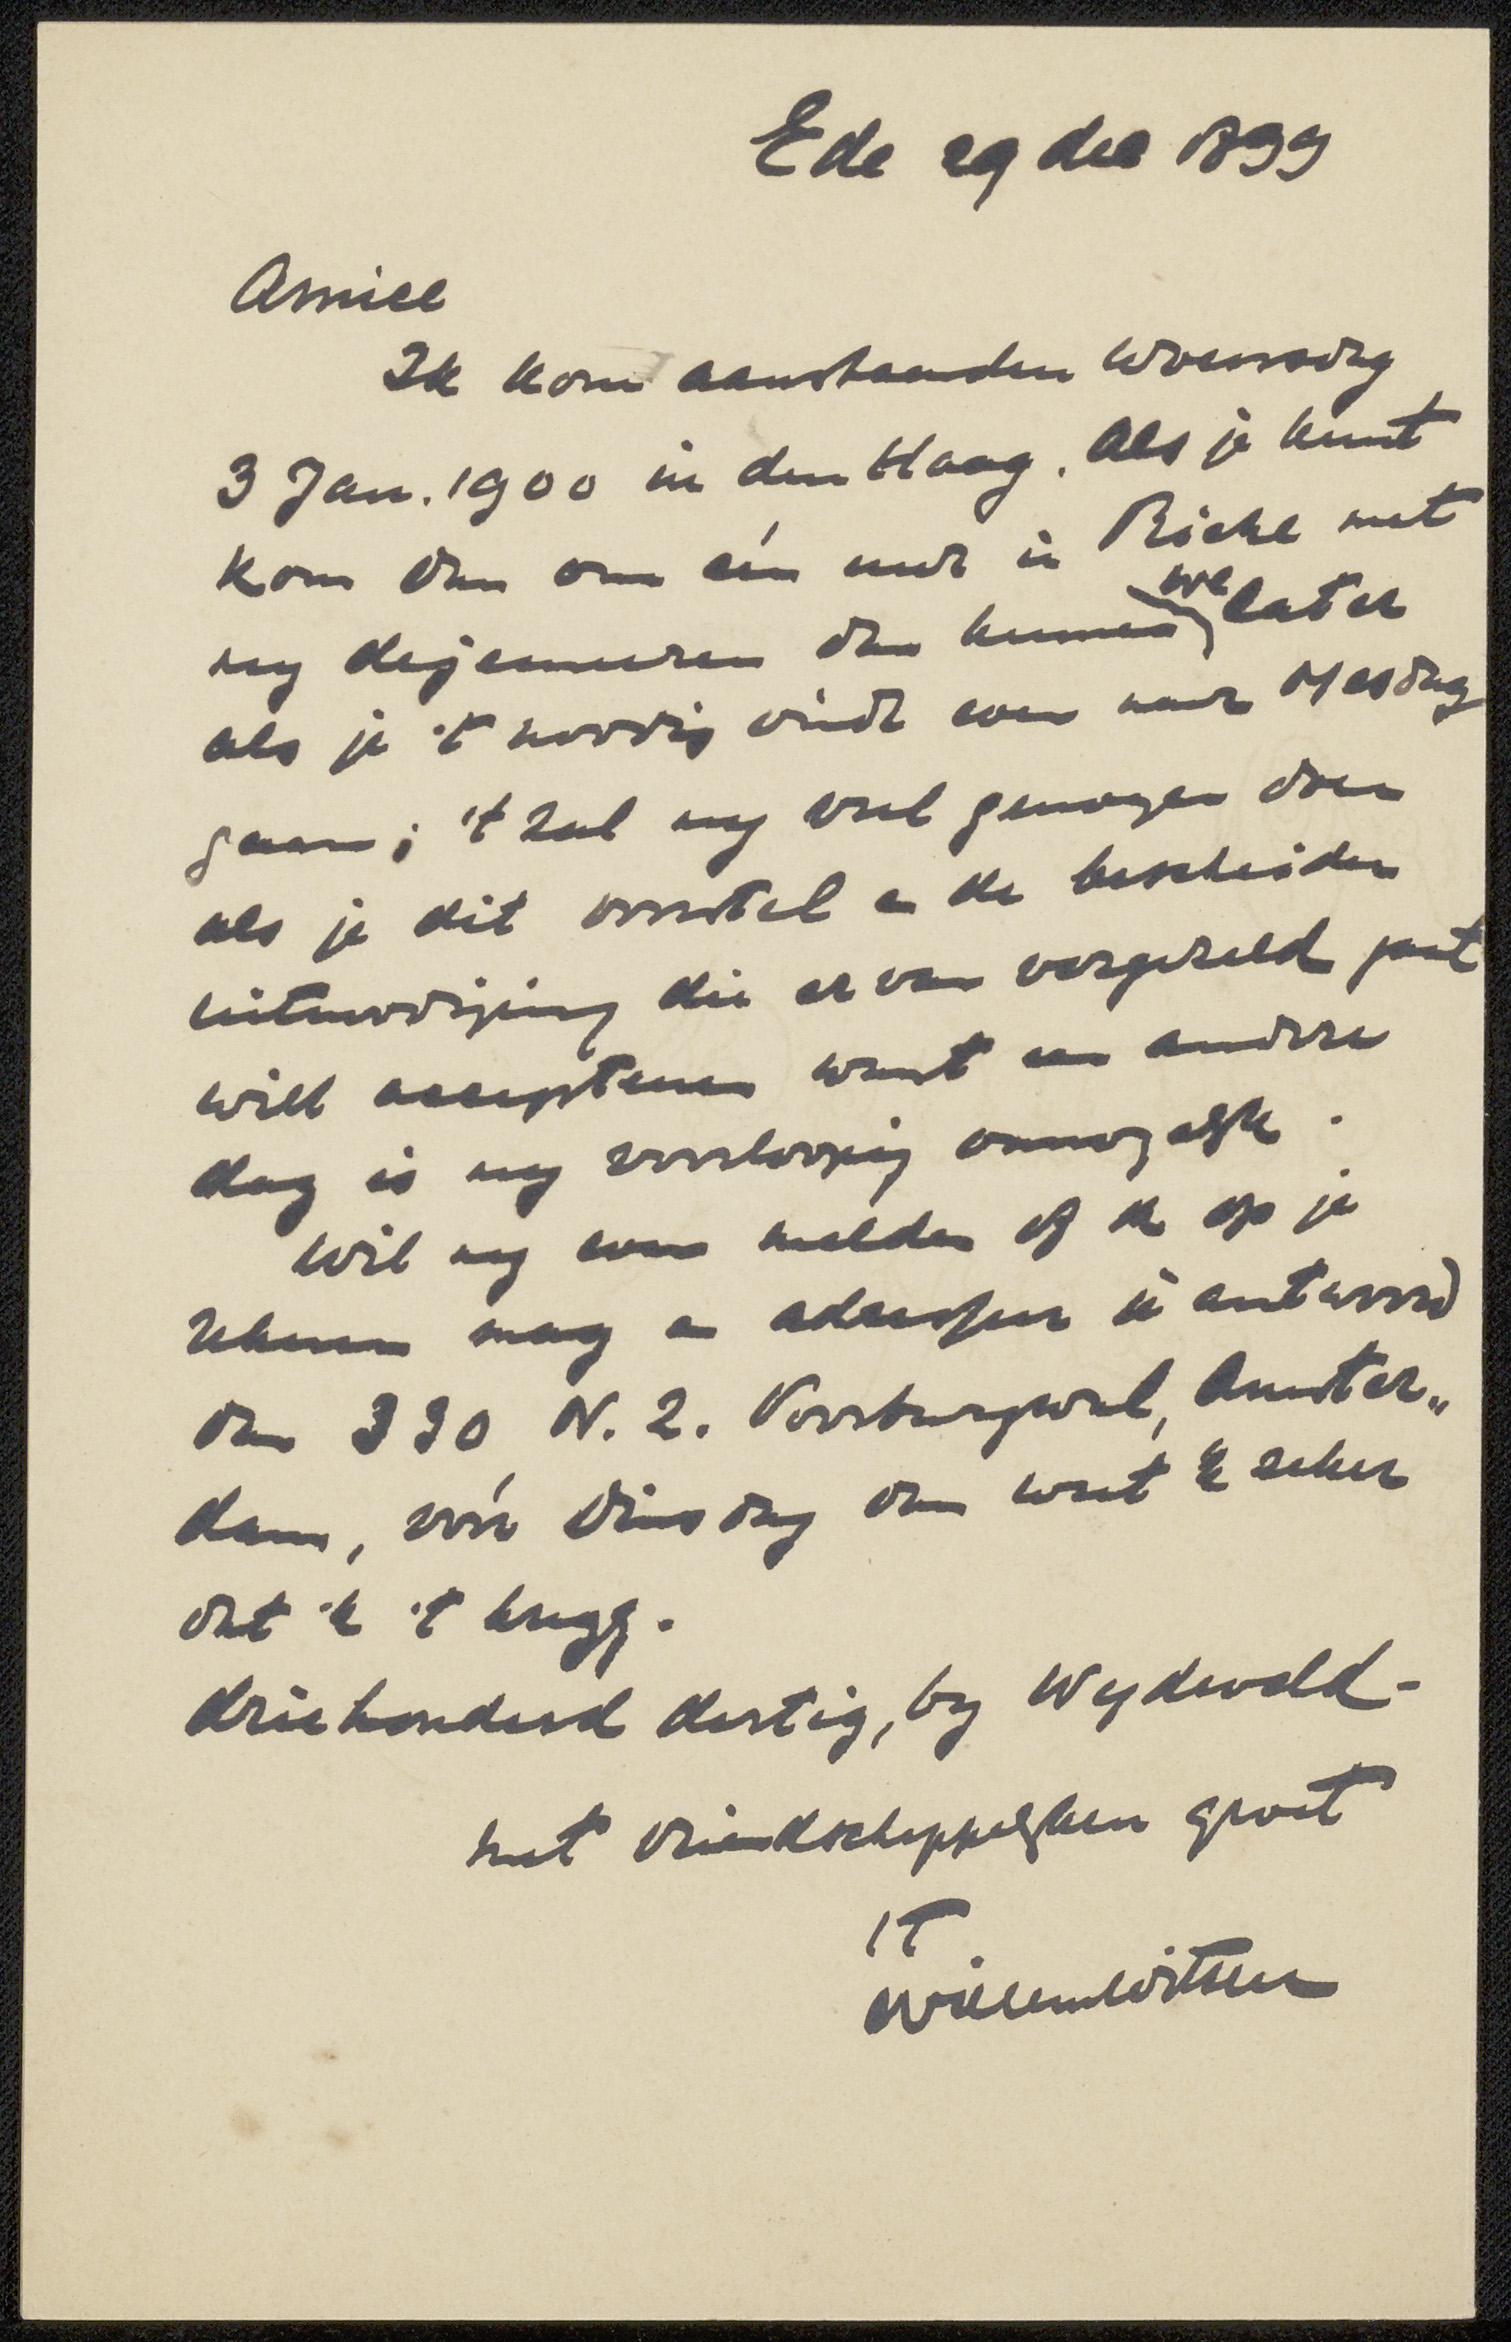 Ede 29 dec 1899
Amice
Ik kom aanstaanden woensdag
3 Jan. 1900 in den Haag. Als je kunt
kom dan om één uur in Riche met
my dejeuneeren dan kunnen we later
als je 't noodig vindt even naar Mesdag
gaan; 't zal my veel genoegen doen
als je dit voorstel en de bescheiden
uitnoodiging die er van vergezeld gaat
wilt accepteeren want een andere
dag is my voorloopig onmogelyk.
Wil my even melden of ik op je
rekenen mag en adresseer je antwoord
dan 330 N. Z. Voorburgwal, Amster„
dam, vóór Dinsdag dan weet 'k zeker
dat 'k 't krygt.
driehonderd dertig, by Wydeveld -
met vriendschappelyken groet
tt
Willem Witsen